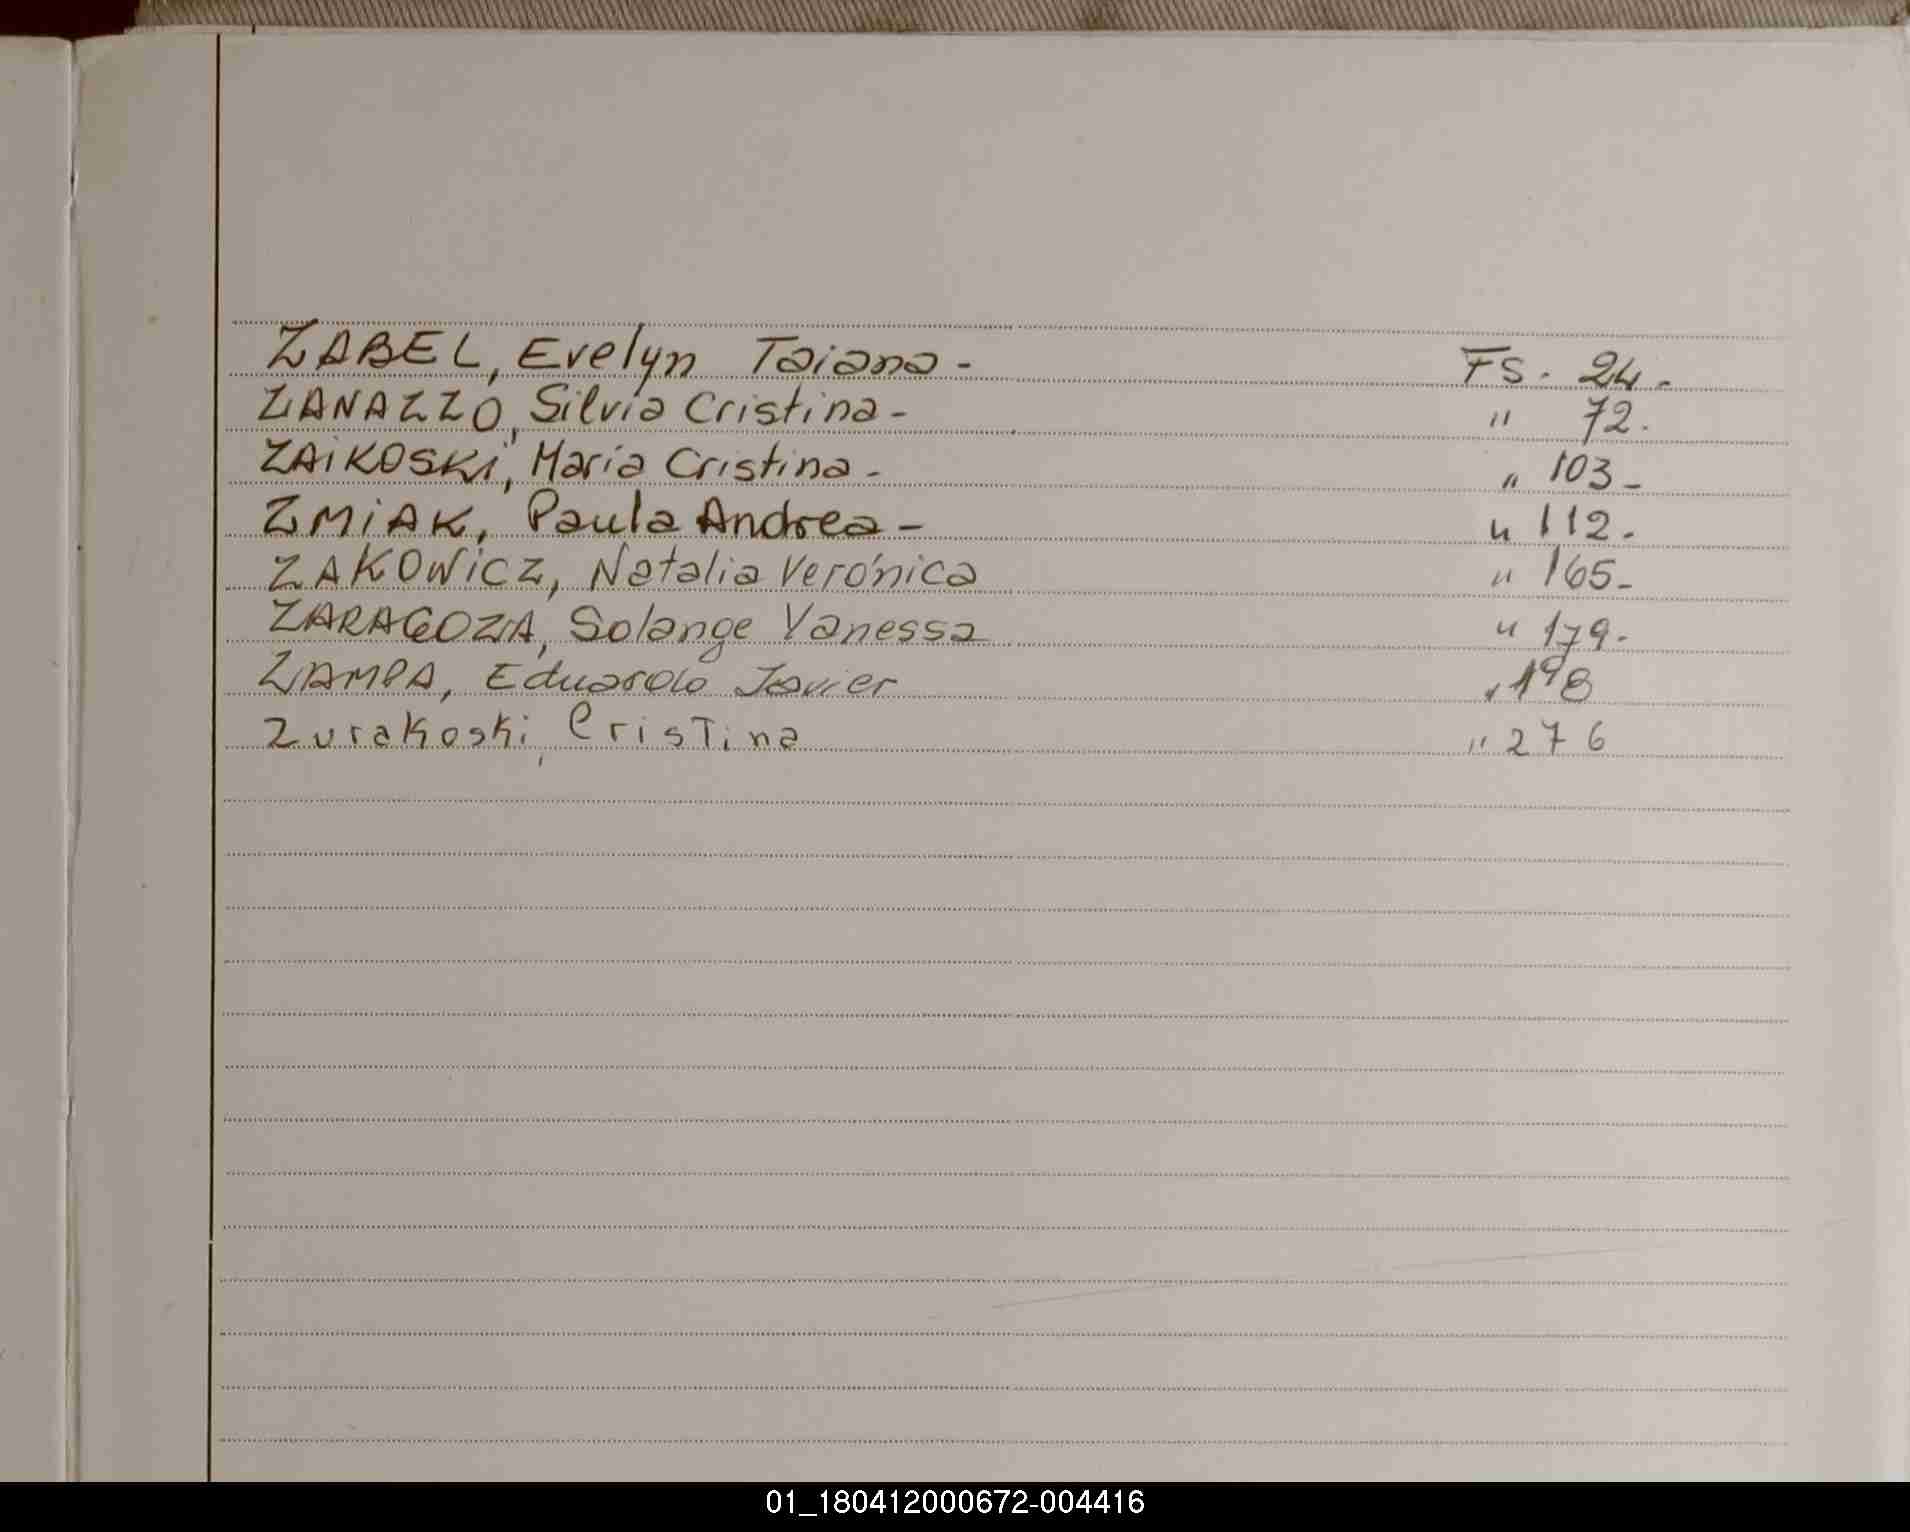 ZABEL, Evelyn Taiana - FS. 24.
ZANAZZO, Silvia Cristina - " 72.
ZAiKOSKi, María Cristina - " 103 -
ZMiAK, Paula Andrea - " 112.
ZAKOWiCZ, Natalia Verónica " 165 -
ZARAGOZA, Solange Vanessa " 179.
ZAMPA, Eduardo Javier " 198
Zurakoski, CrisTina " 276
01_180412000672-004416